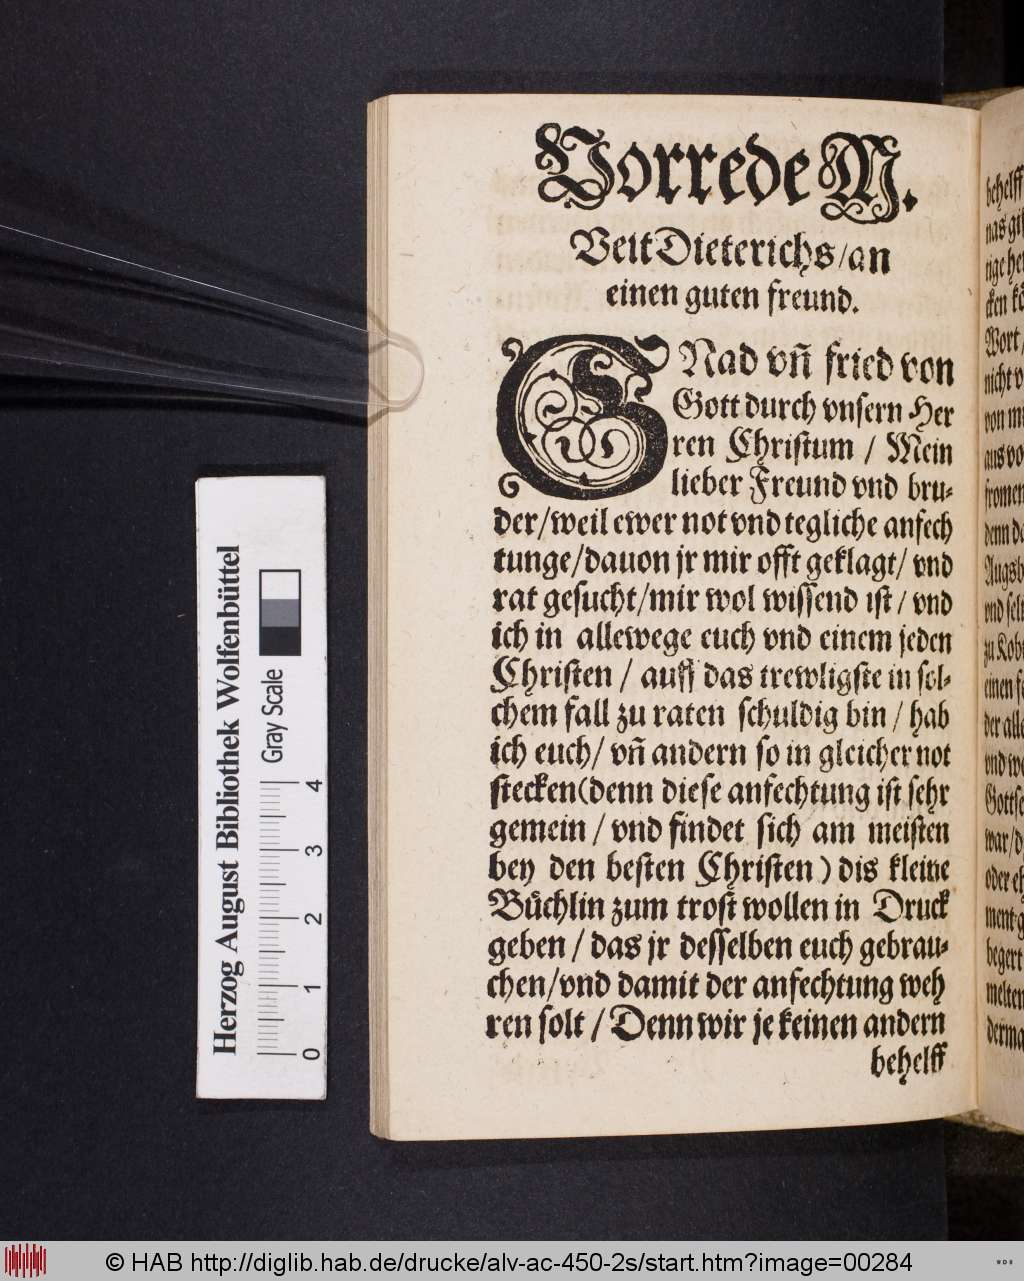 Vorrede M.
Veit Dieterichs/an
einen guten freund.
GNad vñ fried von
Gott durch vnsern Her
ren Christum / Mein
lieber Freund vnd bru-
der/weil ewer not vnd tegliche anfech
tunge/dauon jr mir offt geklagt/ vnd
rat gesucht/mir wol wissend ist / vnd
ich in allewege euch vnd einem jeden
Christen / auff das trewligste in sol-
chem fall zu raten schuldig bin / hab
ich euch/ vñ andern so in gleicher not
stecken(denn diese anfechtung ist sehr
gemein / vnd findet sich am meisten
bey den besten Christen) dis kleine
Bůchlin zum trost wollen in Druck
geben / das jr desselben euch gebrau-
chen/vnd damit der anfechtung weh
ren solt / Denn wir je keinen andern
behelff
behelff
Wort
Herzog August Bibliothek Wolfenbüttel
Gray Scale
0 1 2 3 4
© HAB http://diglib.hab.de/drucke/alv-ac-450-2s/start.htm?image=00284